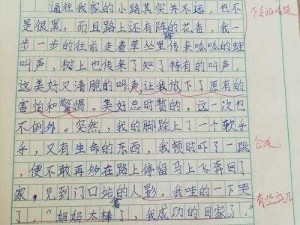 通往我家的小路其实并不远，也不
是很黑，而且路上还有阵阵花香，我一
步一步的往前走着草丛里传来呱呱的蛙
叫声，树上也传来了知了稀有的叫声，
这美妙又清脆的叫声让我放下了原有的
害怕和警惕。美好总时暂的，这一次也
不例外。突然，我的脚踩上了一个软乎
乎，又有生命的东西，我顿时吓了一跳
，便不敢再多在路上停留马上飞奔回了
家，见到门口妈的人影，我哇的一下哭
了，“妈妈太棒了，我成功的回家了。”